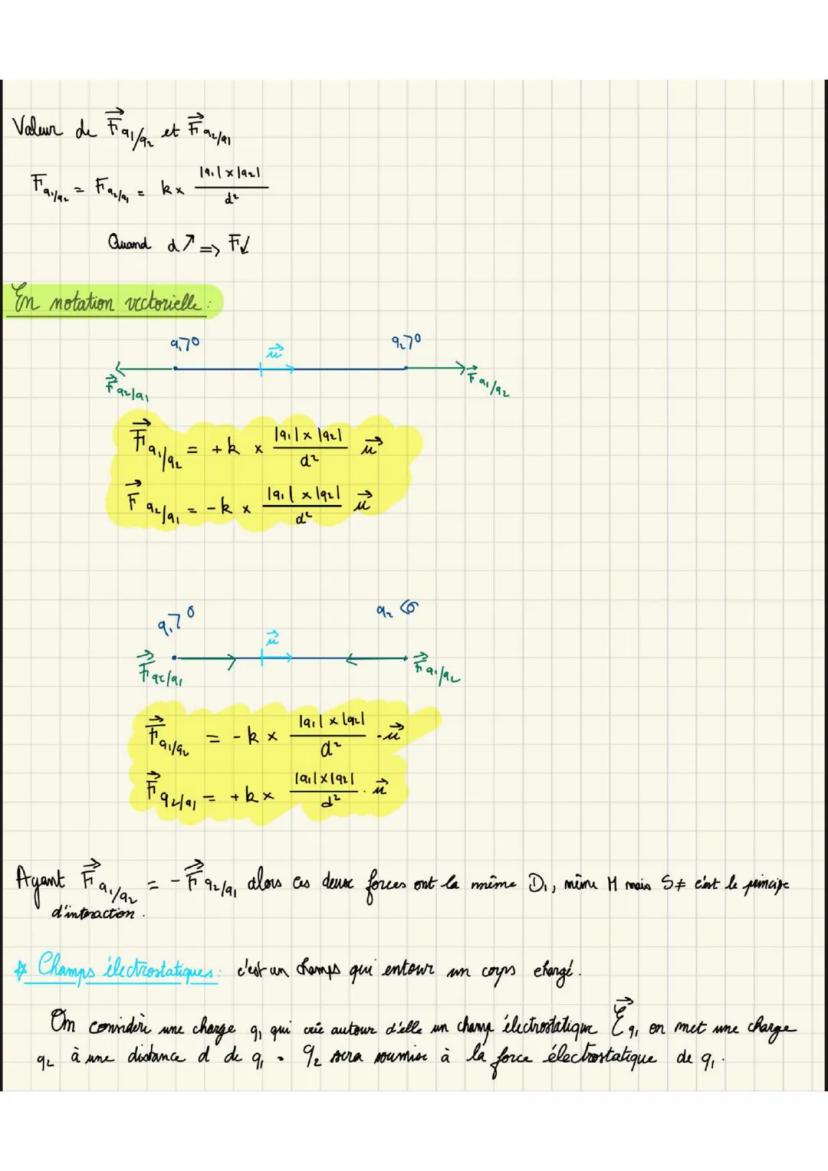 Valeur de F⃗ q₁/q₂ et F⃗ q₂/q₁
F q₁/q₂ = F q₂/q₁ = k × |q₁| × |q₂| / d²
Quand d ↗ => F↙
En notation vectorielle :
q₁>0 u⃗ q₂>0
F⃗ q₂/q₁ F⃗ q₁/q₂
F⃗ q₁/q₂ = +k × |q₁| × |q₂| / d² u⃗
F⃗ q₂/q₁ = -k × |q₁| × |q₂| / d² u⃗
q₁>0 u⃗ q₂<0
F⃗ q₂/q₁ F⃗ q₁/q₂
F⃗ q₁/q₂ = -k × |q₁| × |q₂| / d² . u⃗
F⃗ q₂/q₁ = +k × |q₁| × |q₂| / d² . u⃗
Ayant F⃗ q₁/q₂ = -F⃗ q₂/q₁ alors ces deux forces ont la même D₁, même M mais S≠ c'est le principe
d'intraction.
* Champs électrostatiques : c'est un champs qui entour un corps chargé.
On considère une charge q₁ qui crée autour d'elle un champ électrostatique E⃗ q₁ on met une charge
q₂ à une distance d de q₁. q₂ sera soumise à la force électrostatique de q₁.